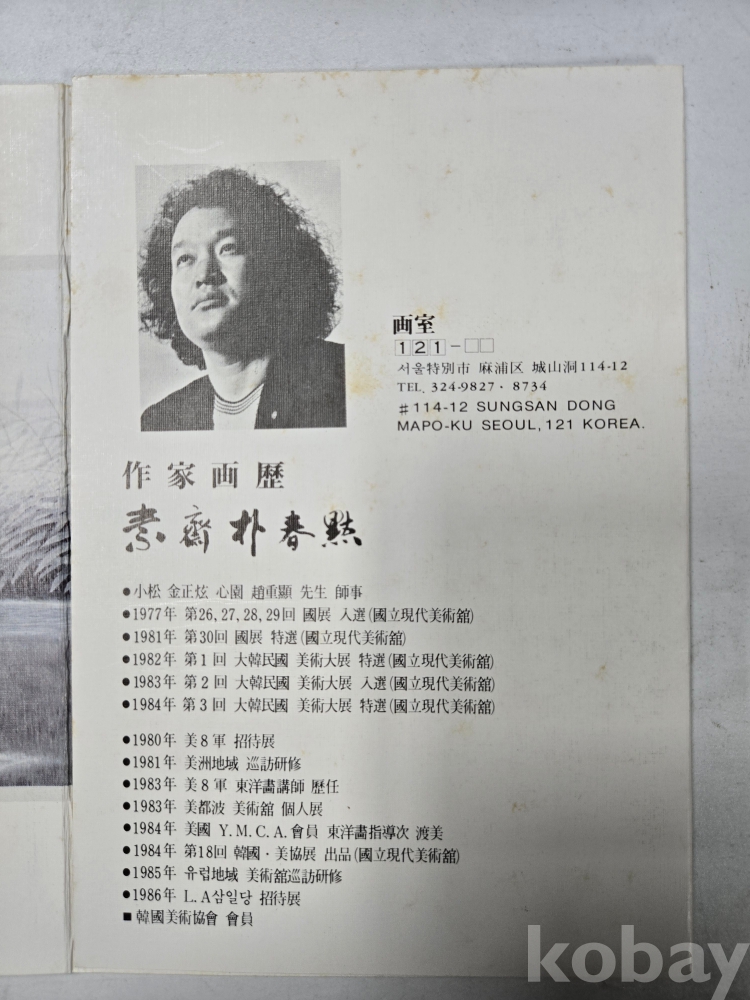 画室
121-□□
서울特別市 麻浦区 城山洞114-12
TEL. 324-9827·8734
#114-12 SUNGSAN DONG
MAPO-KU SEOUL, 121 KOREA.
作家画歷
素齋 朴春黙
●小松 金正炫 心園 趙重顯 先生 師事
●1977年 第26, 27, 28, 29回 國展 入選(國立現代美術舘)
●1981年 第30回 國展 特選(國立現代美術舘)
●1982年 第1回 大韓民國 美術大展 特選(國立現代美術舘)
●1983年 第2回 大韓民國 美術大展 入選(國立現代美術舘)
●1984年 第3回 大韓民國 美術大展 特選(國立現代美術舘)
●1980年 美8軍 招待展
●1981年 美洲地域 巡訪研修
●1983年 美8軍 東洋畵講師 歷任
●1983年 美都波 美術舘 個人展
●1984年 美國 Y.M.C.A.會員 東洋畵指導次 渡美
●1984年 第18回 韓國·美協展 出品(國立現代美術舘)
●1985年 유럽地域 美術舘巡訪研修
●1986年 L.A삼일당 招待展
■韓國美術協會 會員
kobay